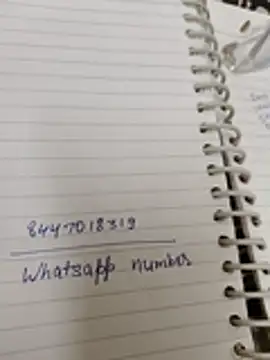 8447018319
Whatsapp number